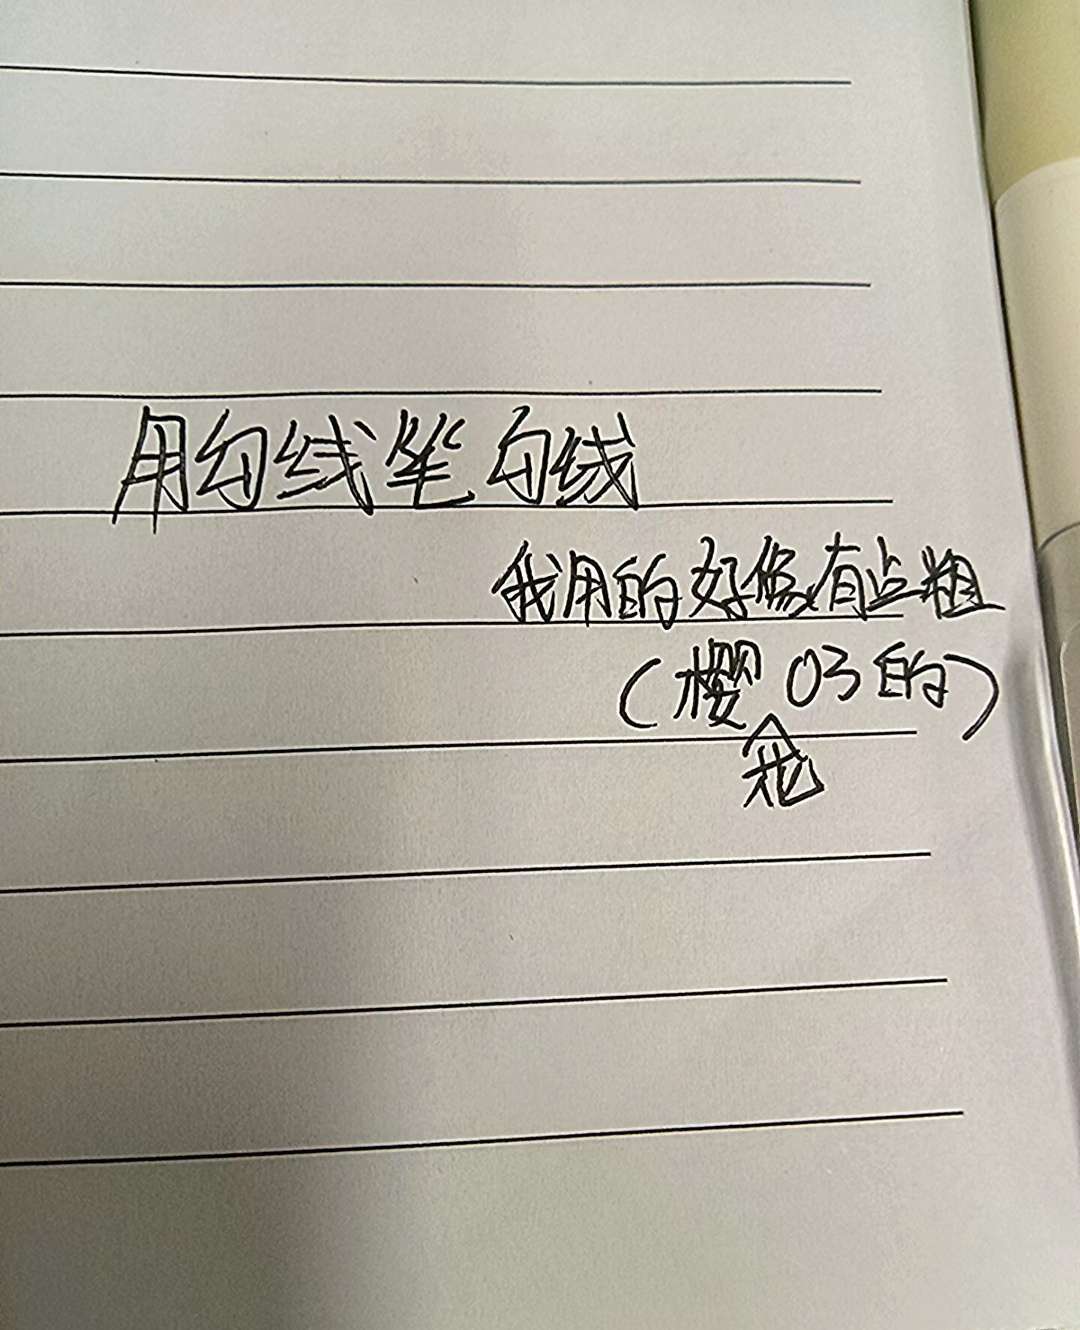 用勾线笔勾线
我用的好像有点粗
(樱 03的)
花